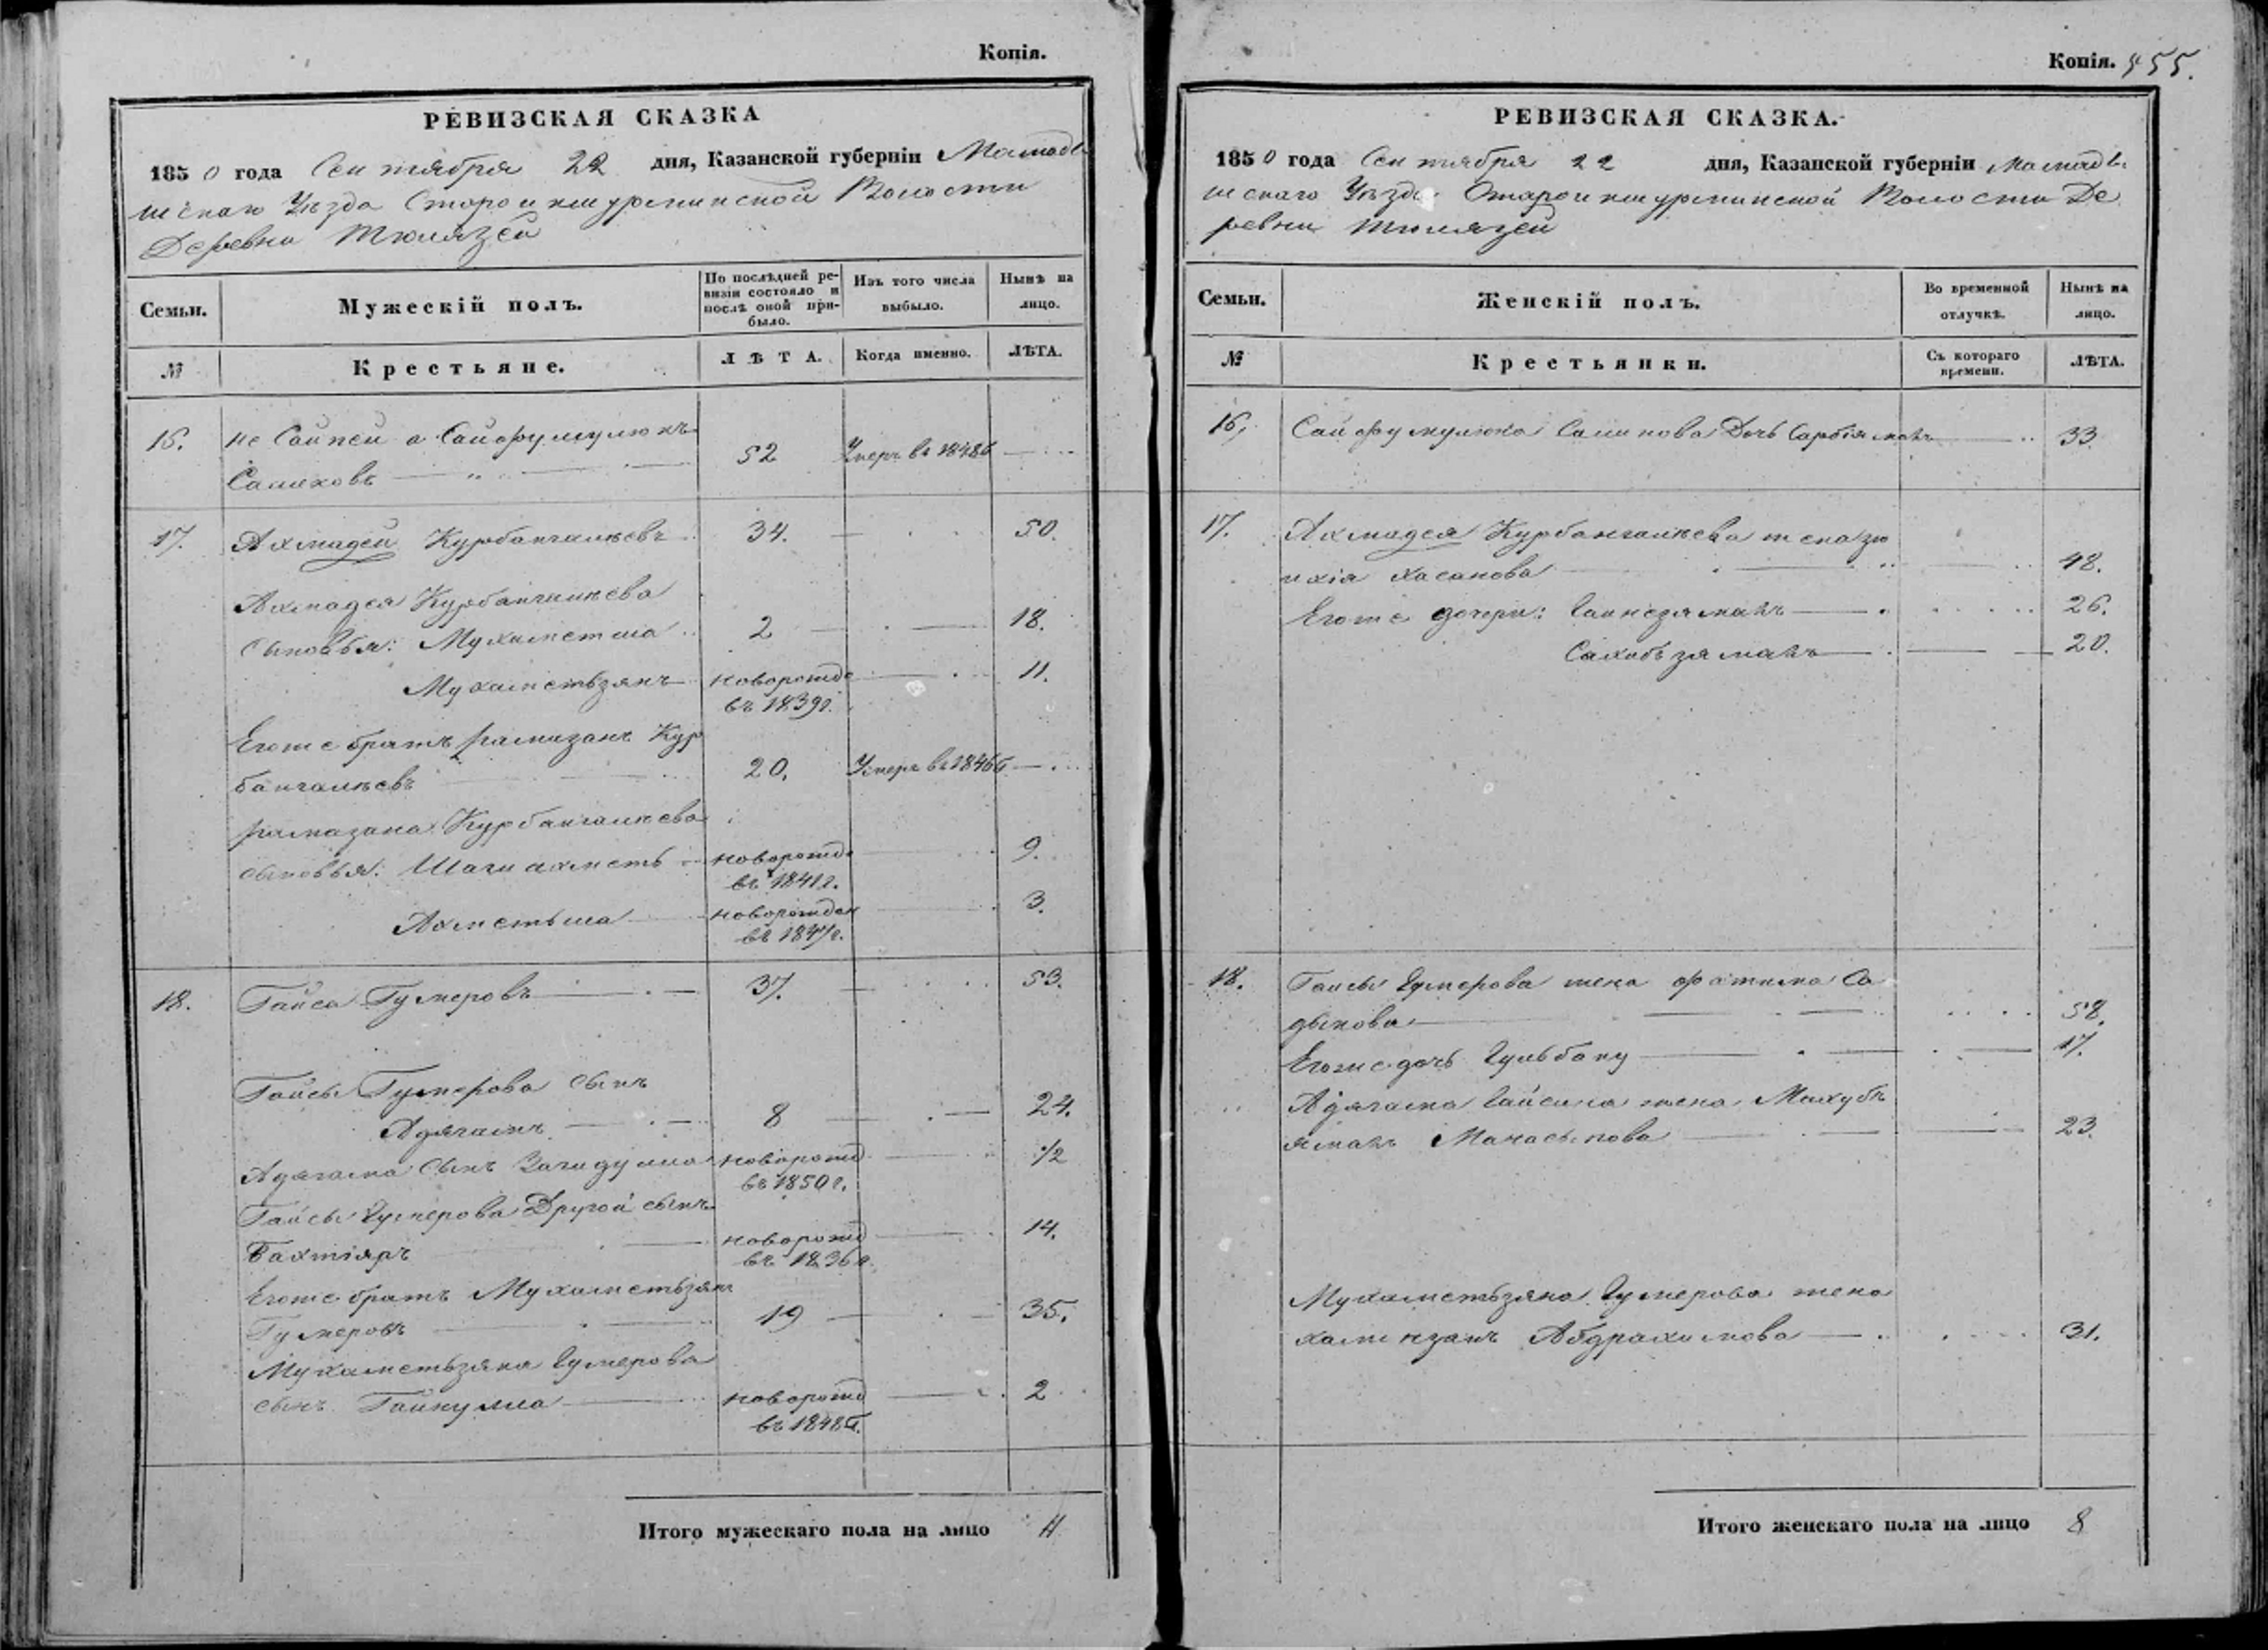 Копія.
РЕВИЗСКАЯ СКАЗКА
1850 года Сентября 22 дня, Казанской губерніи Мамады
шскаго Уѣзда Староикшурминской Волости
Деревни Тюлязей
Семьи. Мужескій полъ. По послѣдней ре- Изъ того числа Нынѣ на
визіи состояло и
послѣ оной при- выбыло. лицо.
было.
№ Крестьяне. ЛѢТА. Когда именно. ЛѢТА.
16. не Сайпей а Сайфумулюкъ
Салиховъ 52 Умеръ въ
17. Ахмадей Курбангалѣевъ 34. 50.
Ахмадея Курбангалѣева
сыновья: Мухаметша 2 18.
Мухаметьзянъ новорожде 11.
въ 1839г.
Егоже братъ рамазанъ Кур
бангалѣевъ 20. Умеръ въ 1846г
рамазана Курбангалѣева
сыновья: Шагиахметь новорожде 9.
въ 1841г.
Ахметьша новорожден 3.
въ 1847г.
18. Гайса Гумеровъ 37. 53.
Гайсы Гумерова сынъ
Адягамъ 8 24.
Адягама сынъ Загидулла новорожд 1/2
въ 1850г.
Гайсы Гумерова Другой сынъ
Бахтіяръ новорожд 14.
въ 1836г.
Егоже братъ Мухаметьзянъ
Гумеровъ 19 35.
Мухаметьзяна Гумерова
сынъ Гайнулла новорожд 2
въ 1848г.
Итого мужескаго пола на лицо 11
Копія. 455.
РЕВИЗСКАЯ СКАЗКА.
1850 года Сентября 22 дня, Казанской губерніи Мамады
шскаго Уѣзда Староикшурминской Волости Де
ревни Тюлязей
Семьи. Женскій полъ. Во временной Нынѣ на
отлучкѣ. лицо.
№ Крестьянки. Съ котораго ЛѢТА.
времени.
16. Сайфумулюка Салихова Дочь 33.
17. Ахмадея Курбангалѣева жена зю
Хасанова 48.
Егоже дочери: 26.
Сахибьзямалъ 20.
18. Гайсы Гумерова жена фатима Са
дыкова 58.
Егоже дочь Гульбану 17.
Адягама Гайсина жена Махубь
ямалъ Манасыпова 23.
Мухаметьзяна Гумерова жена
Абдрахимова 31.
Итого женскаго пола на лицо 8